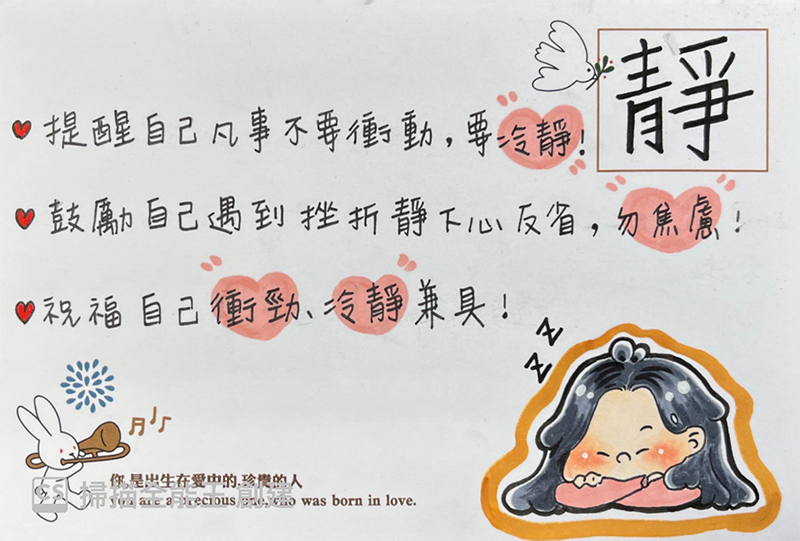 靜
提醒自己凡事不要衝動，要冷靜！
鼓勵自己遇到挫折靜下心反省，勿焦慮！
祝福自己衝勁、冷靜兼具！
zzz
你,是出生在愛中的,珍貴的人
are a precious one, who was born in love.
CS 掃描全能王 創建